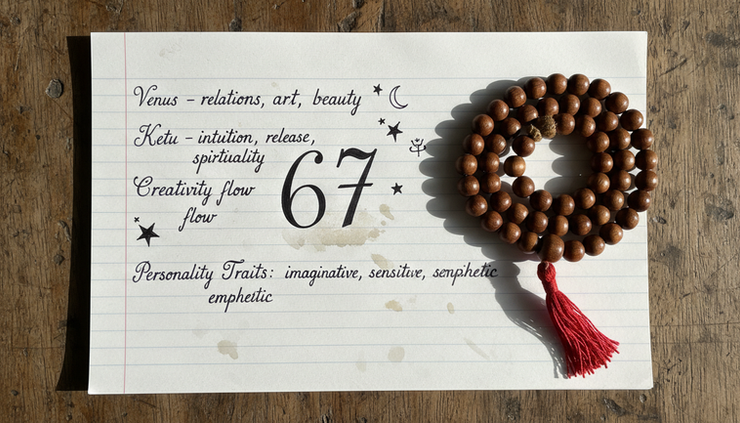 Venus – relations, art, beauty
Ketu – intuition, release,
spirtuality
67
Creativity flow
flow
Personality Traits: imaginative, sensitive, senphetic
empheitic